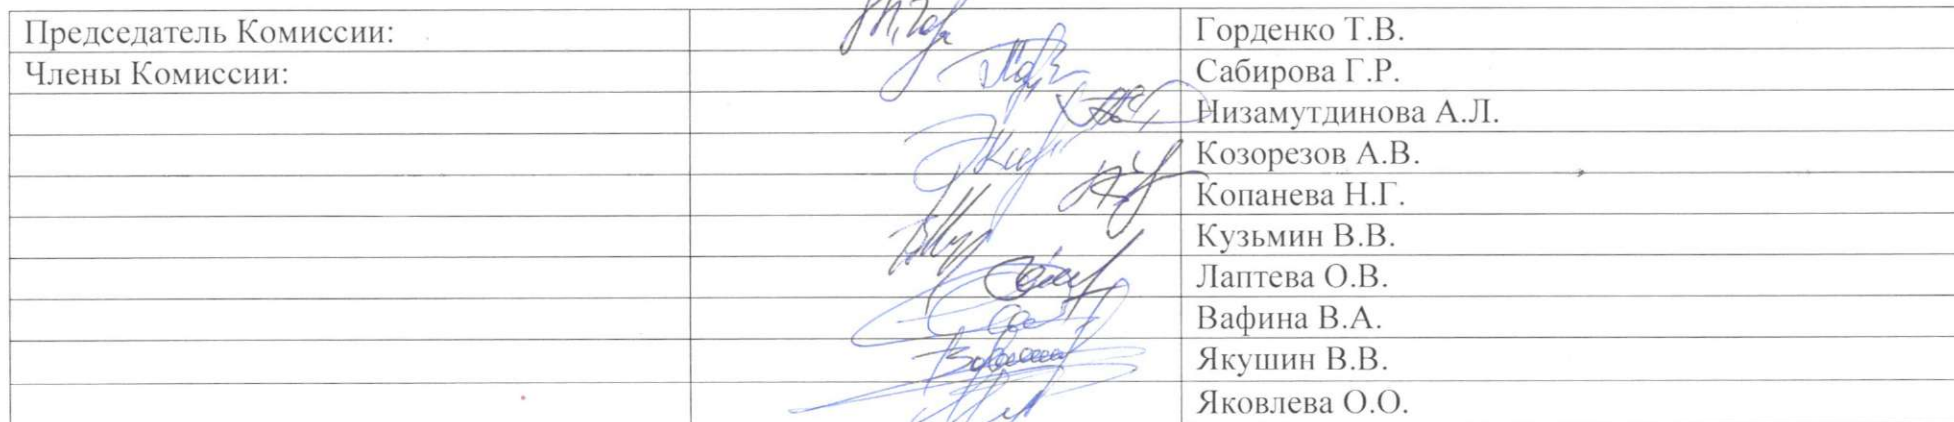 Председатель Комиссии: Горденко Т.В.
Члены Комиссии: Сабирова Г.Р.
Низамутдинова А.Л.
Козорезов А.В.
Копанева Н.Г.
Кузьмин В.В.
Лаптева О.В.
Вафина В.А.
Якушин В.В.
Яковлева О.О.